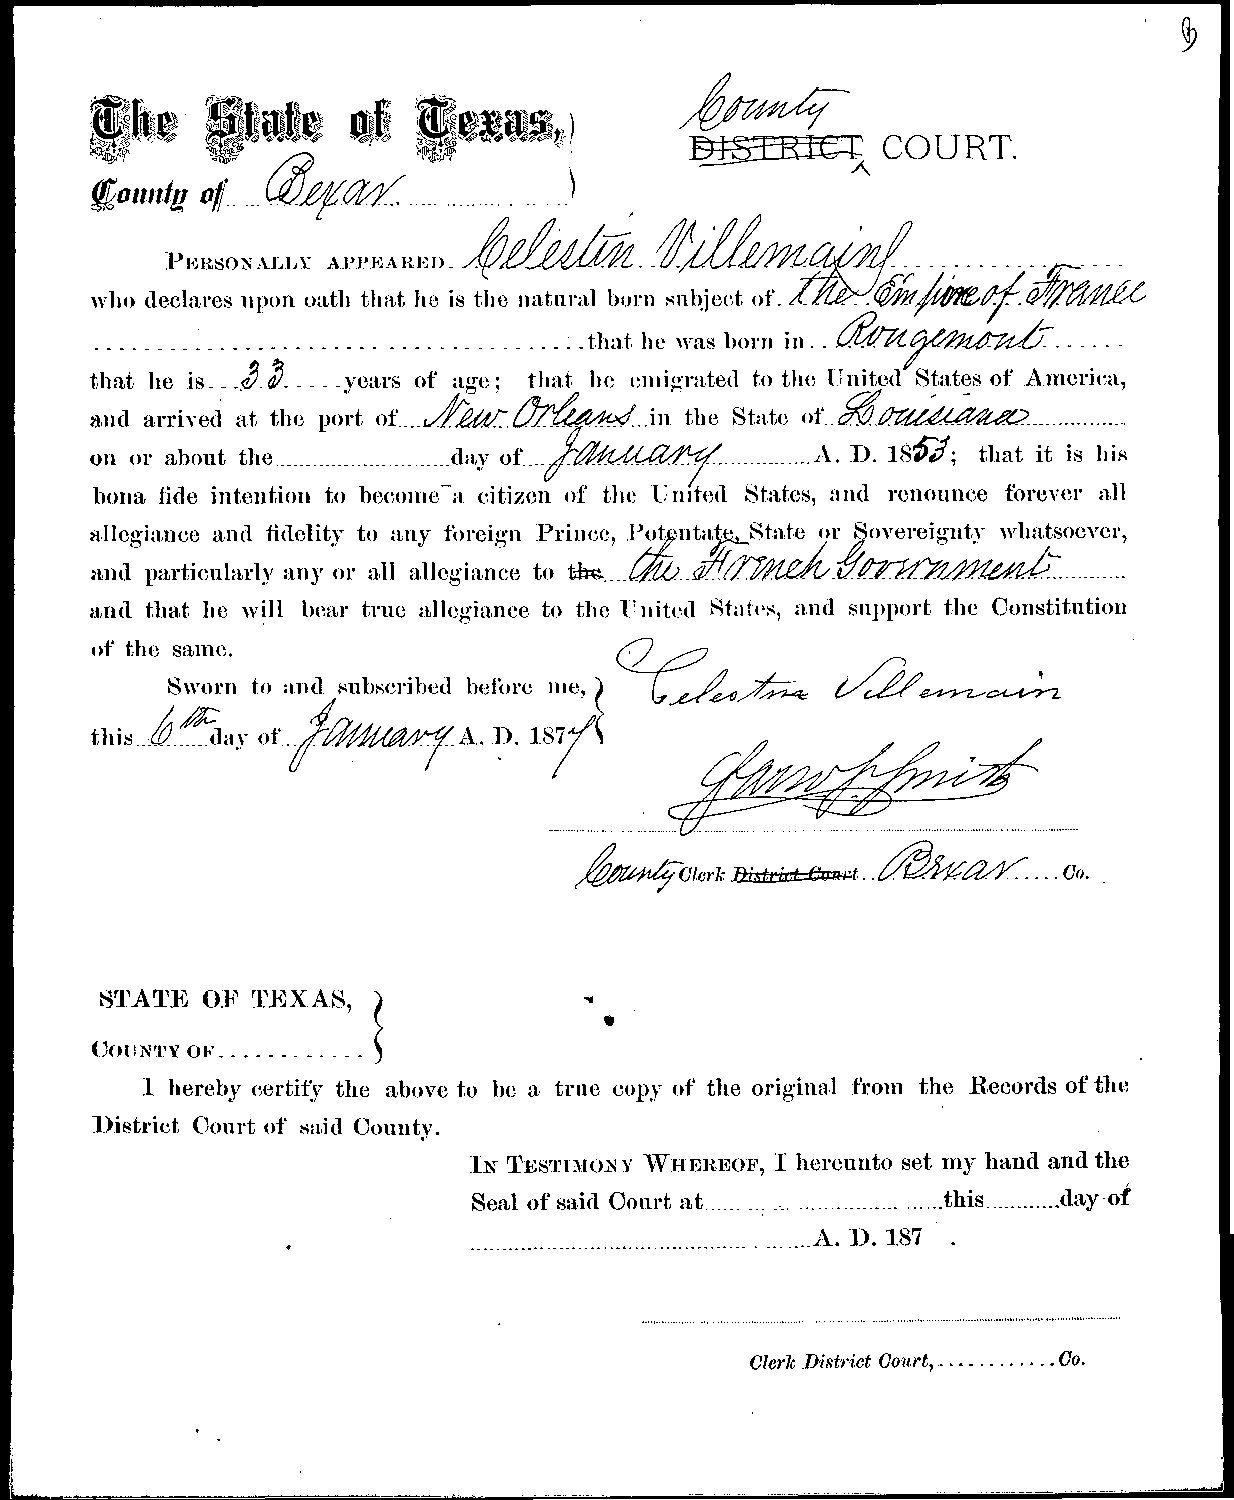 The State of Texas,
County of Bexar
County
DISTRICT COURT.
PERSONALLY APPEARED Celestin Villemain
who declares upon oath that he is the natural born subject of the Empire of France
that he was born in Rougemont
that he is 33 years of age; that he emigrated to the United States of America,
and arrived at the port of New Orleans in the State of Louisiana
on or about the day of January A. D. 1853; that it is his
bona fide intention to become a citizen of the United States, and renounce forever all
allegiance and fidelity to any foreign Prince, Potentate, State or Sovereignty whatsoever,
and particularly any or all allegiance to the the French Government
and that he will bear true allegiance to the United States, and support the Constitution
of the same.
Sworn to and subscribed before me,
this 6th day of January A. D. 187
Celestin Villemain
Smith
County Clerk District Court Bexar Co.
STATE OF TEXAS,
COUNTY OF
I hereby certify the above to be a true copy of the original from the Records of the
District Court of said County.
IN TESTIMONY WHEREOF, I hereunto set my hand and the
Seal of said Court at this day of
A. D. 187 .
Clerk District Court, Co.